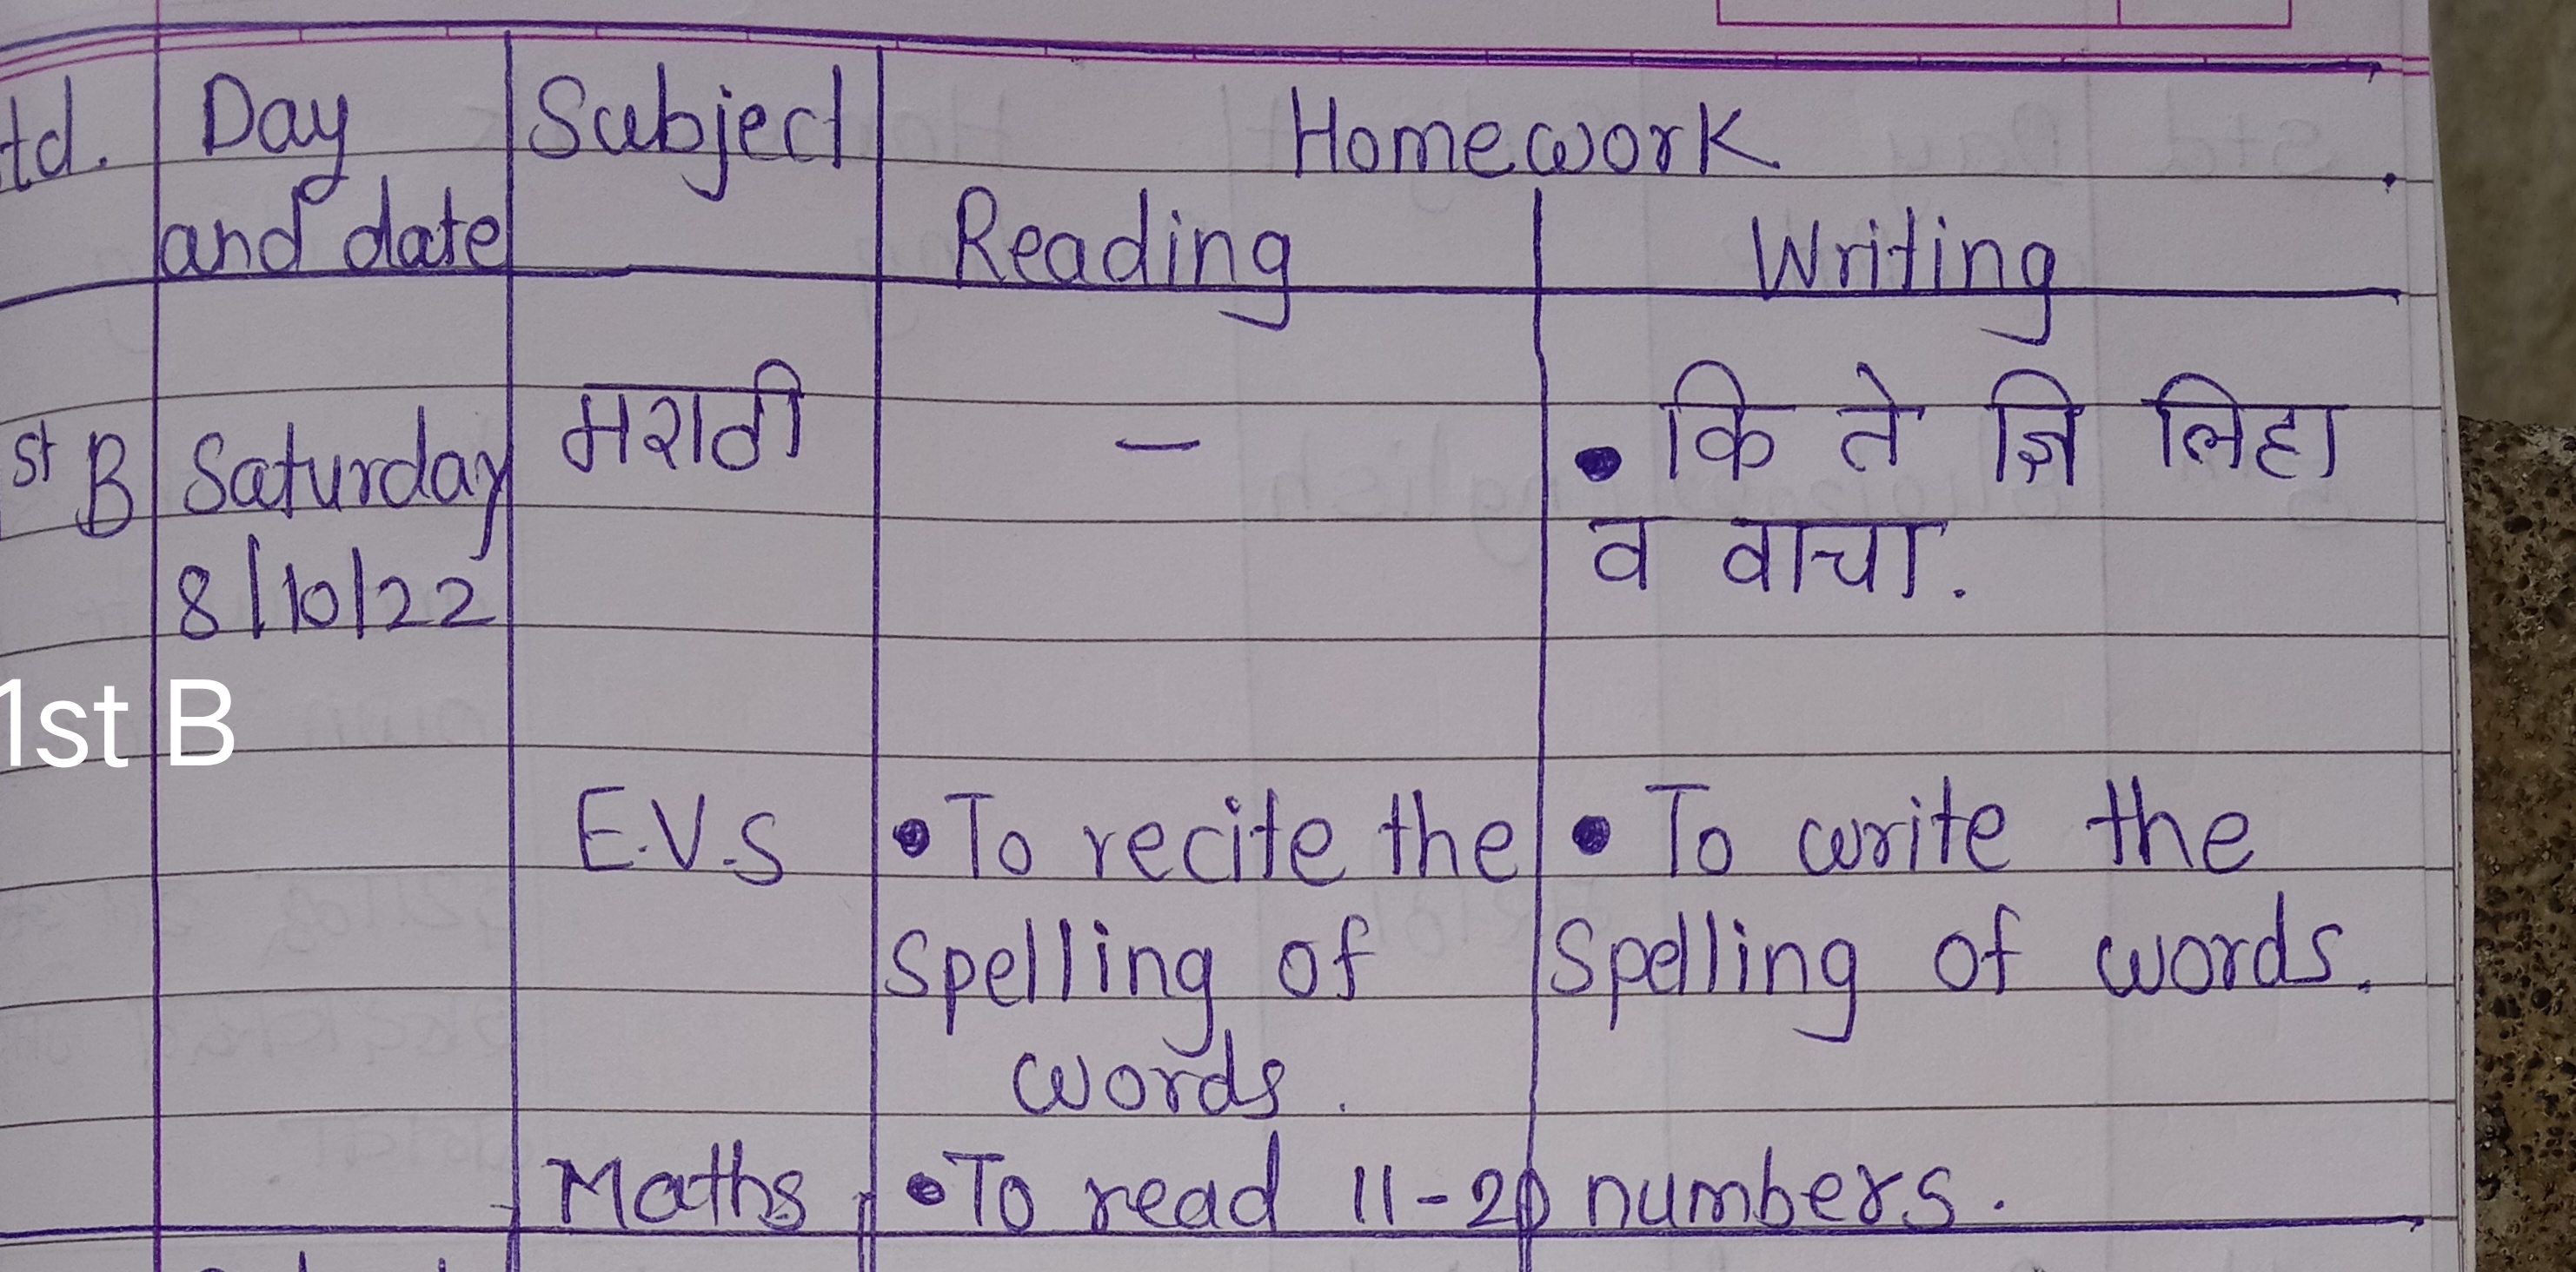 td. Day Subject Homework
and date Reading Writing
मराठी - • कि ते ज्ञि लिहा
st B Saturday
व वाचा.
8/10/22
1st B
E.V.S • To recite the • To write the
Spelling of Spelling of words.
words.
Maths • To read 11-20 numbers.